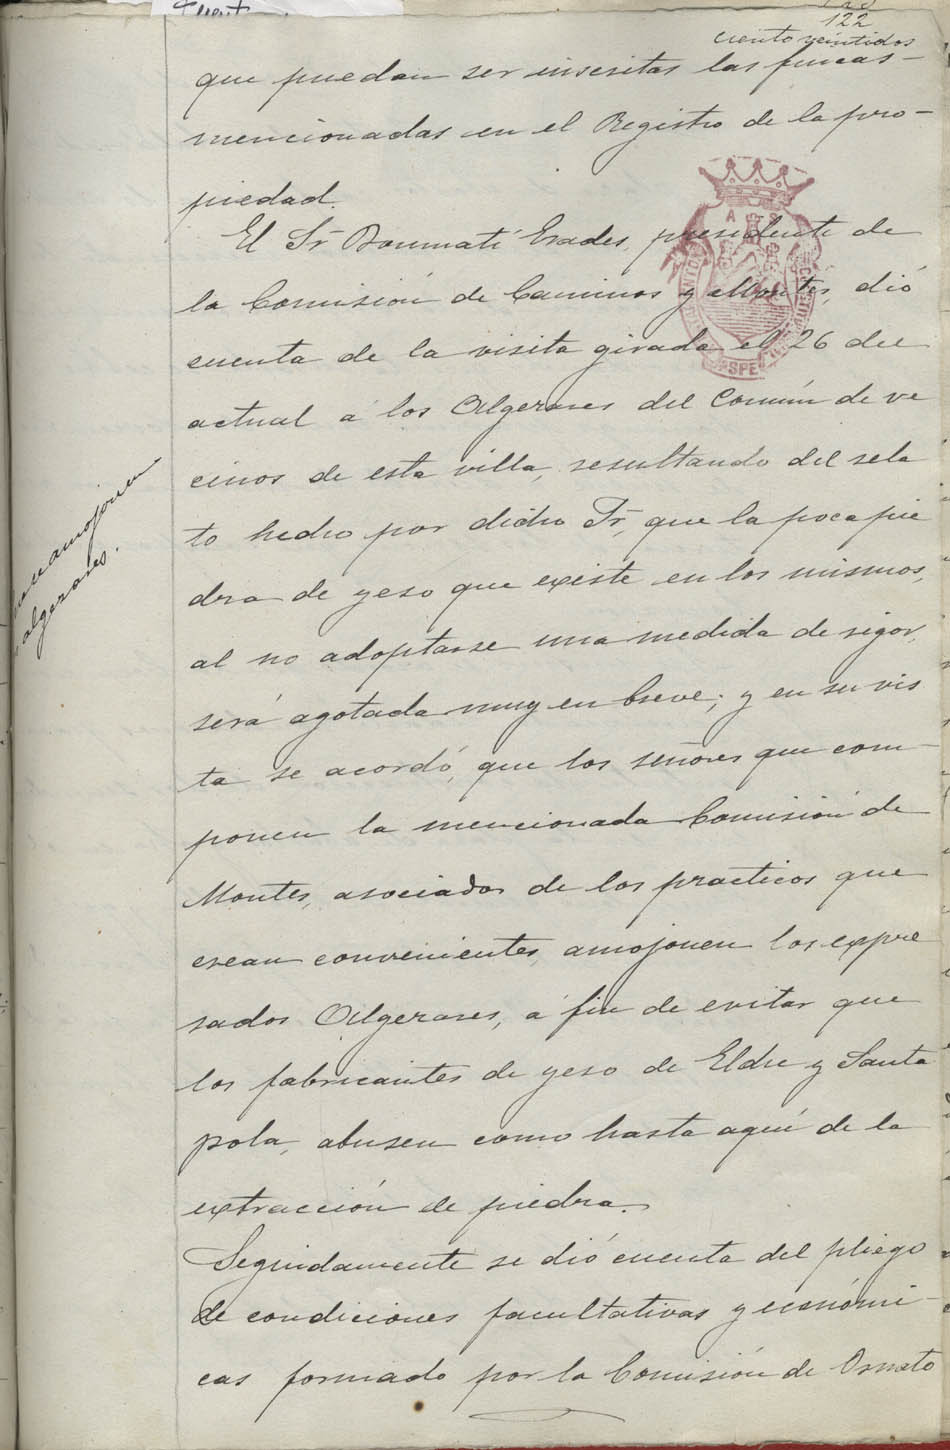 122
ciento veintidos
que puedan ser inscritas las fincas—
mencionadas en el Registro de la pro-
piedad.
El Sr. Bonmatí Erades, presidente de
la Comisión de Caminos y Montes, dió
cuenta de la visita girada el 26 del
actual á los Algerases del Común de ve
cinos de esta villa, resultando del rela
to hecho por dicho Sr., que la poca pie
dra de yeso que existe en los mismos,
al no adoptarse una medida de rigor,
será agotada muy en breve; y en su vis
ta se acordó, que los señores que com-
ponen la mencionada Comisión de
Montes, asociados de los practicos que
crean convenientes, amojonen los expre
sados Algerases, á fin de evitar que
los fabricantes de yeso de Elche y Santa
pola, abusen como hasta aquí de la
extracción de piedra.
Seguidamente se dió cuenta del pliego
de condiciones facultativas y económi-
cas formado por la Comisión de Ornato
amojonen
algerases.